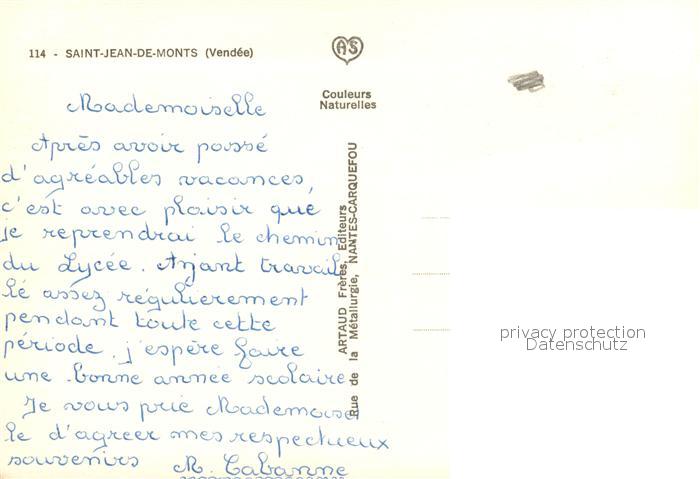 114 - SAINT-JEAN-DE-MONTS (Vendée)
AS
Couleurs
Naturelles
Mademoiselle
Après avoir passé
d'agréables vacances,
c'est avec plaisir que
je reprendrai le chemin
du Lycée. Ayant travail
lé assez régulièrement
pendant toute cette
période, j'espère faire
une bonne année scolaire
Je vous prie Mademoisel
le d'agreer mes respectueux
souvenirs M. Cabanne
ARTAUD Frères, Editeurs
Rue de la Métallurgie, NANTES-CARQUEFOU
privacy protection
Datenschutz